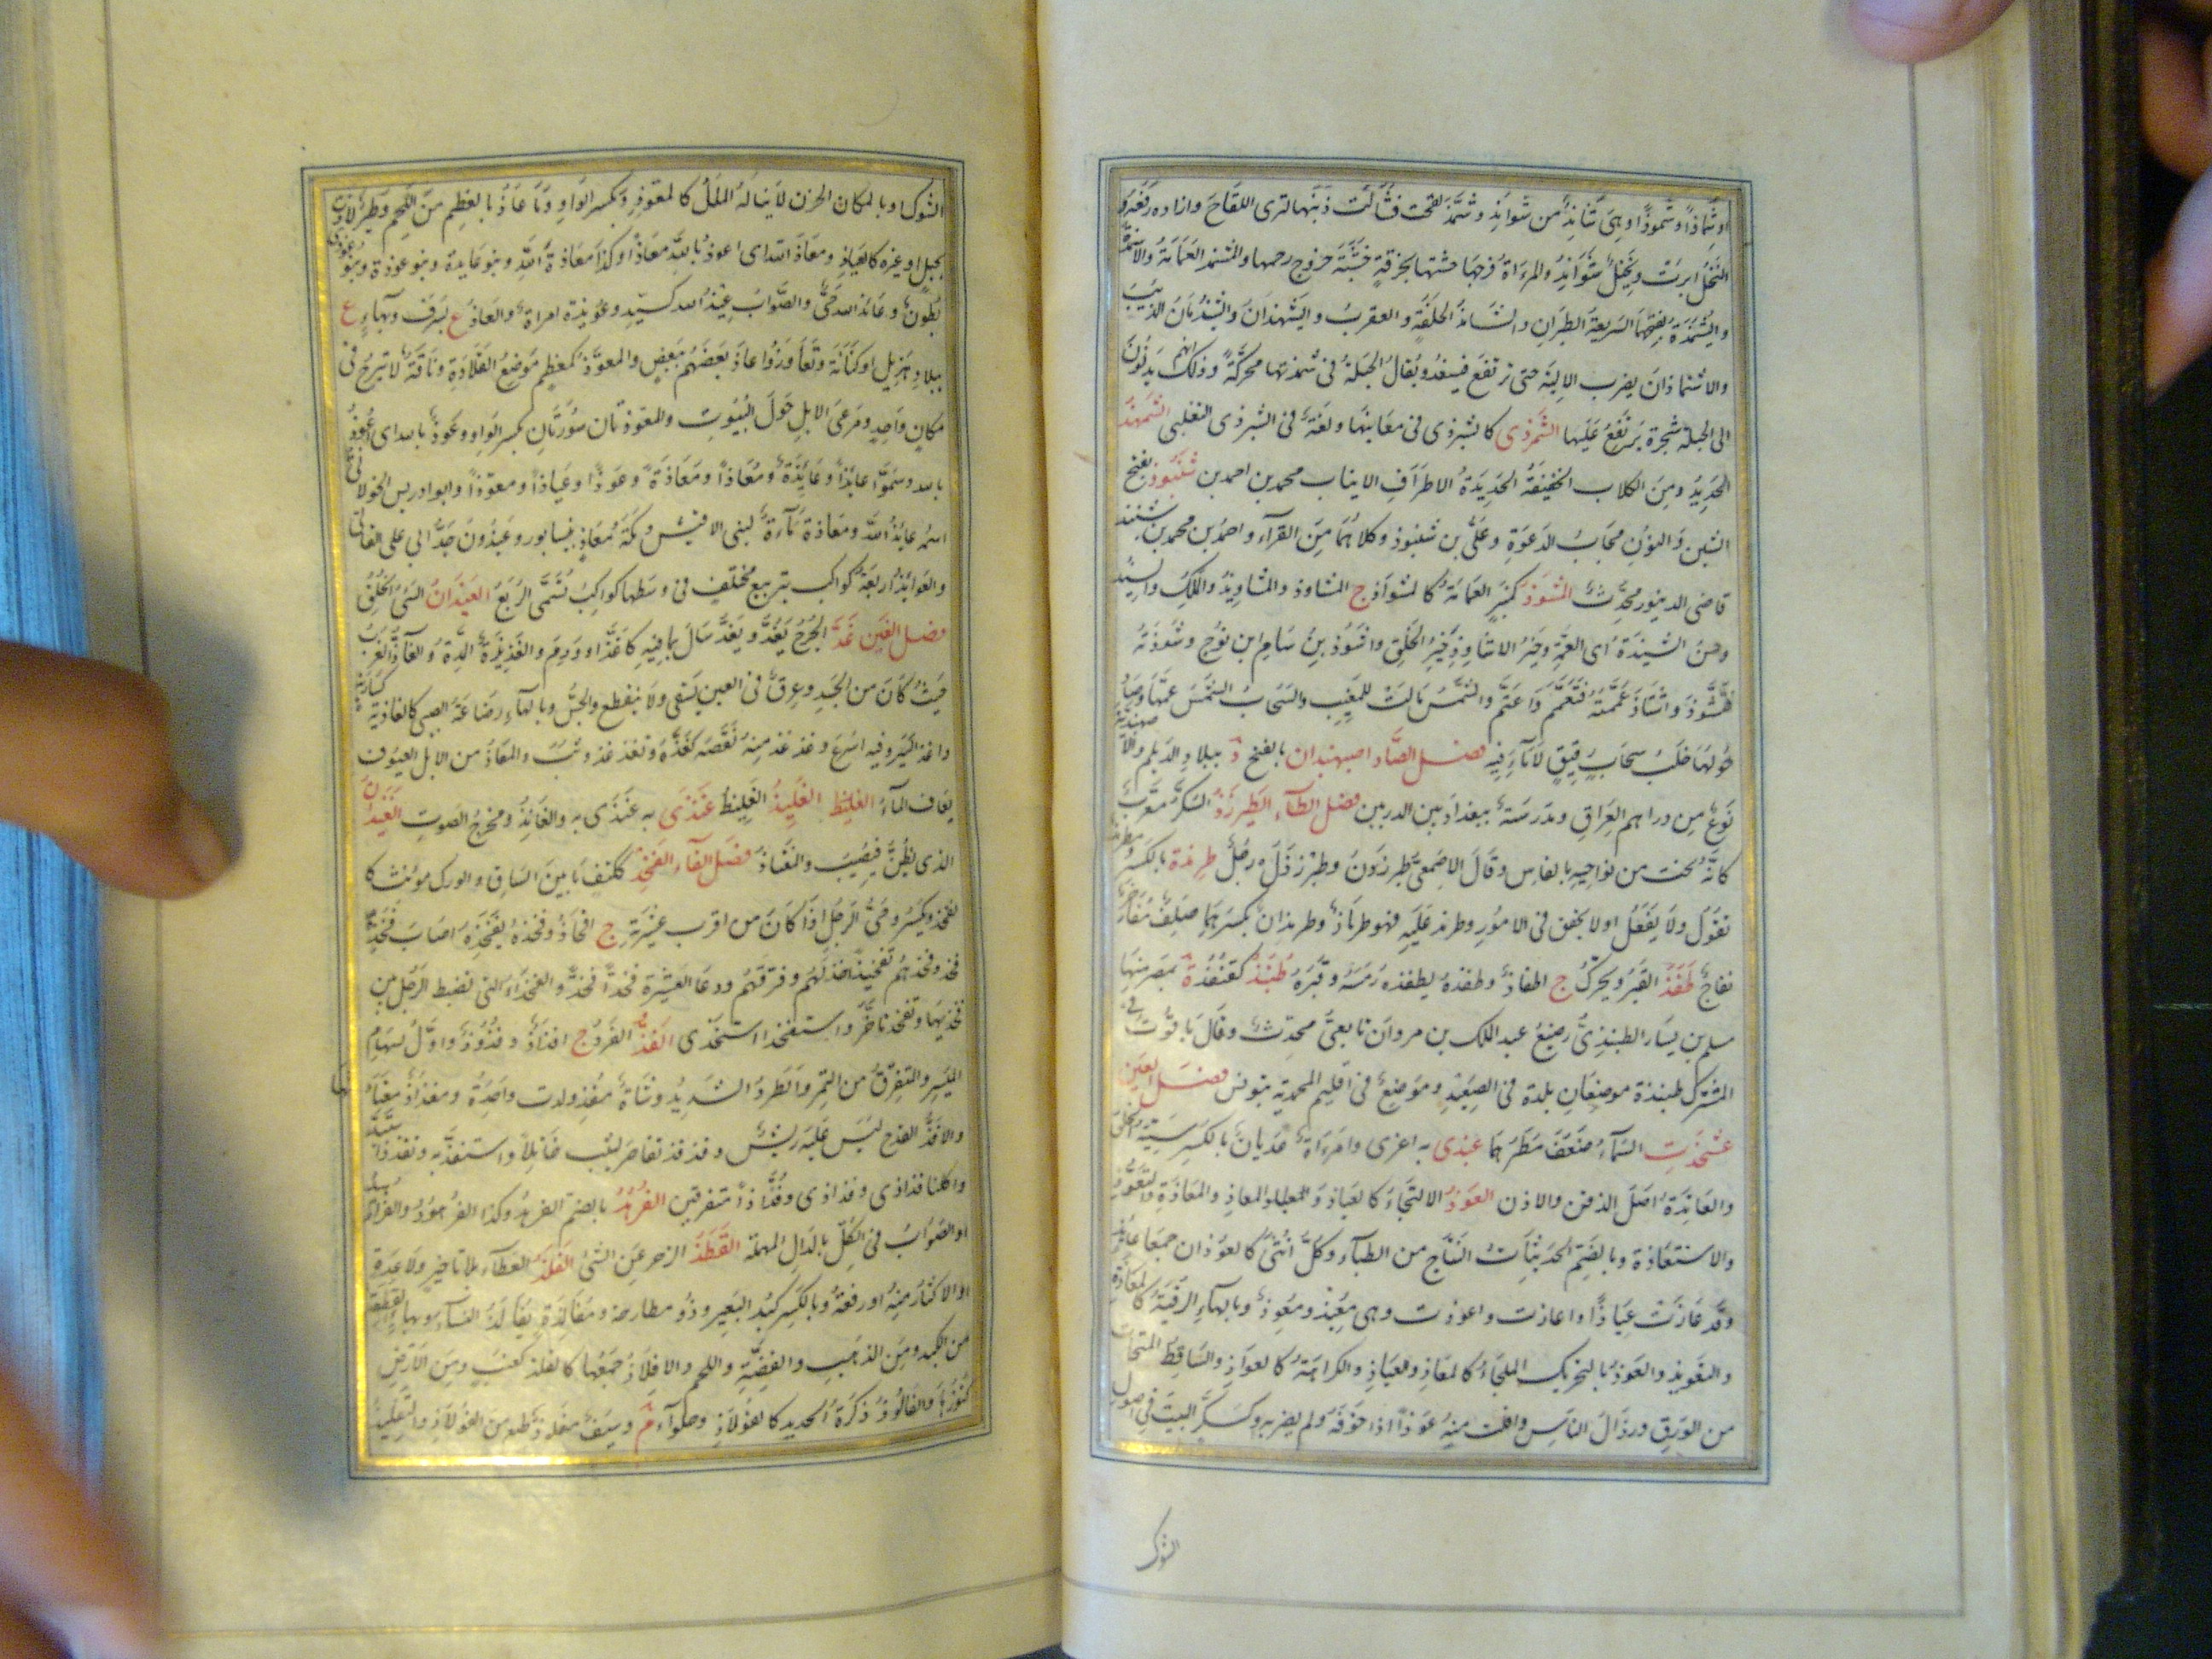 النخل ابرت ونخيل شوامذ والمرءة فرجها حشتها بخرقة خشية خروج رحمها والمشمذ العمامة
والاشتماذ ان يضرب الالية حتى ترتفع فيسفد ويقال الجبلة في شمذتها محركة وذلك انهم يدنون
الى الجبلة شجرة يرتفع عليها الشمرذى كالشبرذى في معانيها ولغة في الشبرذى التغلبى الشمهذ
الحديد ومن الكلاب الخفيفة الحديدة الاطراف الانياب محمد بن احمد بن شنبوذ بفتح
الشين والنون مجاب الدعوة وعلى بن شنبوذ وكلاهما من القرآء واحمد بن محمد بن شنبذ
قاضى الدينور محدث المشوذ كمنبر العمامة كالمشواذ ج المشاوذ والمشاويذ والملك والسيد
وحسن الشيذة اى العمة وخير الاشاوذ خير الخلق واشوذ بن سام ابن نوح وشوذته
فتشوذ واشتاذ عممته فتعمم واعتم والشمس مالت للمغيب والسحاب الشمس عمها وصار
حولها خلب سحاب رقيق لا مآء فيه فصل الصاد اصبهبذان بالفتح د ببلاد الديلم والاصبهبذية
نوع من دراهم العراق ومدرسة ببغداد بين الدربين فصل الطآء الطبرزذ السكر معرب
كانه نحت من نواحيه بالفاس وقال الاصمعى طبرزن وطبرزل رجل طرمذة بالكسر ومطرمذ
يقول ولا يفعل او لا يحقق في الامور وطرمذ عليه فهو طرماذ وطرمذان بكسرهما صلف مفاخر
نفاج طفذ القبر ويحرك ج اطفاذ وطفذه يطفذه رمسه وقبره طنبذ كقنفذ ة بمصر منها
مسلم بن يسار الطنبذى رضيع عبد الملك بن مروان تابعى محدث وقال ياقوت في
المشترك طنبذة موضعان بلدة في الصعيد وموضع في اقليم المحمدية بتونس فصل العين
عشجذت السمآء ضعف مطرها عنذى به اغرى وامرءة عنذيان بالكسر سيئة الخلق
والعانذة اصل الذقن والاذن العوذ الالتجآء كالعياذ والمعاذ والمعاذة والتعوذ
والاستعاذة وبالضم الحديثات النتاج من الظبآء وكل انثى كالعوذان جمعا عائذ
وقد عاذت عياذا واعاذت واعوذت وهى معيذ ومعوذ وبالهآء الرقية كالمعاذة
والتعويذ والعوذ بالتحريك الملجآء كالمعاذ والعياذ والكراهة كالعواذ والساقط المتحات
من الورق ورذال الناس وافلت منه عوذا اذا خوفه ولم يضربه وكسكر البيت في اصول
الشوك
الشوك او بالمكان الحزن لا يناله المال كالمعوذ وبكسر الواو وما عاذ بالعظم من اللحم وطير لاذت
بجبل او غيره كالعياذ ومعاذ الله اى اعوذ بالله معاذا وكذا معاذة الله وبنو عايذة وبنو عوذة وبنو عوذى
بطون وعائذ الله حى والصواب عيذ الله كسيد وعويذة امراة والعاذ ع بسرف وبهآء ع
ببلاد هذيل او كنانة وتعاوذوا عاذ بعضهم ببعض والمعوذ كمعظم موضع القلادة وناقة لا تبرح في
مكان واحد ومرعى الابل حول البيوت والمعوذتان سورتان بكسر الواو وعوذ بالله اى اعوذ
بالله وسموا عابذا وعايذة ومعاذا ومعاذة وعوذا وعياذا ومعوذا وابو ادريس الخولانى
اسمه عايذ الله ومعاذة مآءة لبنى الاقيش وسكة معاذ بنيسابور وعيذون جد ابى على القالى
والعوائذ اربعة كواكب بتربيع مختلف في وسطها كواكب تسمى الربع العيذان السيئ الخلق
فصل الغين غذ الجرح يغذ ويغذ سال بما فيه كاغذ او ورم والغذيذة المدة والغاذ الغرب
حيث كان من الجسد وعرق في العين يسقى ولا ينقطع والحس وبالهآء رماعة الصبى كالغاذية
واغذ السير وفيه اسرع وغذغذ منه نقصه كغذه وتغذغذ وثب والمغاذ من الابل العيوف
يعاف المآء الغليظ الغليذ الغليظ غنذى به عنذى به والغانذ ومخرج الصوت الغيذان
الذى يظن فيصيب فصل الفآء الفخذ ككتف ما بين الساق والورك مؤنث كا
لفخذ ويكسر وحى الرجل اذا كان من اقرب عشيرته ج افخاذ وفخذه يفخذه اصاب فخذه
فخذ وفخذهم تفخيذا خذلهم وفرقهم ودعا العشيرة فخذا فخذا والفخذاء التى تضبط الرجل بين
فخذيها وتفخذ تاخر واستفخذ استخذى الفذ الفرد ج افذاذ وفذوذ واول سهام
الميسر والمتفرق من التمر والطرد الشديد وشاة مفذ ولدت واحدة ومفذاذ معتادتها
والافذ القدح ليس عليه ريش وفذفذ تقاصر ليثب خاتلا واستفذ به وتفذذ استبد
واكلنا فذاذى وفذاذى وفذاذا متفرقين الفرهذ بالضم الفرهد وكذا الفرهوذ والفراهيذ
او الصواب في الكل بالدال المهملة الفطذ الزجر عن الشئ الفلذ العطآء بلا تاخير ولا عدة
او الاكثار منه او دفعة وبالكسر كبد البعير وذو مطارحة ومفالذة يفالذ النسآء وبهآء القطعة
من الكبد ومن الذهب والفضة واللحم والافلاذ جمعها كالفلذ كعنب ومن الارض
كنوزها والفالوذ ذكرة الحديد كالفولاذ وحلوآء م وسيف مفلوذ طبع من الفولاذ والتفليذ